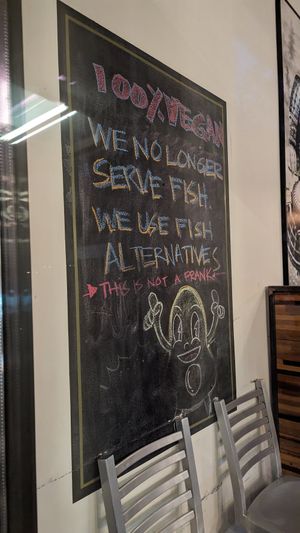 100% VEGAN
WE NO LONGER
SERVE FISH.
WE USE FISH
ALTERNATIVES
THIS IS NOT A PRANK